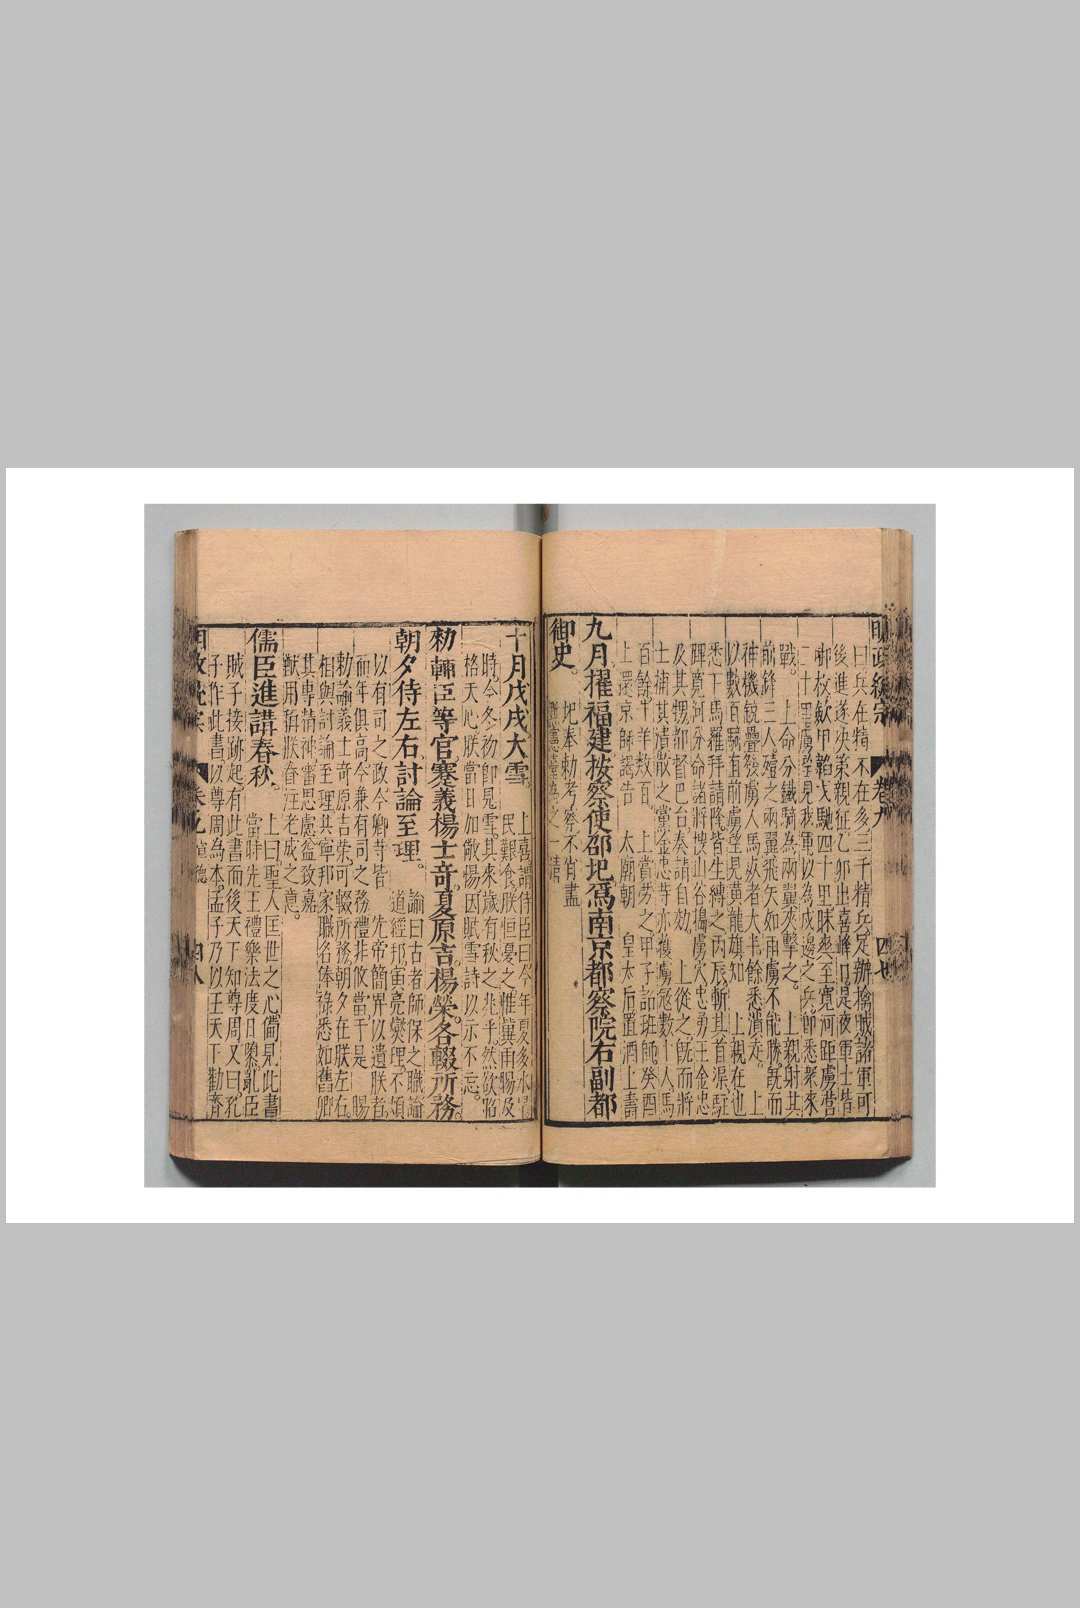 明政統宗 卷九 四七
曰兵在精不在多三千精兵足辦擒賊諸軍可
後進遂決策親征乙卯出喜峰口是夜軍士皆
啣枚歛甲韜戈馳四十里昧爽至寬河距虜營
二十里虜望見我軍以為戍邊之兵即悉衆來
戰。上命分鐵騎為兩翼夾擊之。上親射其
前鋒三人殪之兩翼飛矢如雨虜不能勝既而
神機銃疊發虜人馬死者大半餘悉潰走。上
以數百騎直前虜望見黃龍旗知 上親在也
悉下馬羅拜請降皆生縛之丙辰斬其首渠駐
蹕寬河分命諸將搜山谷搗虜穴忠勇王金忠
及其甥都督把台奏請自効 上從之既而將
士捕其潰散之黨金忠等亦獲虜冦數十人馬
百餘牛羊数百 上賞勞之甲子詔班師癸酉
上還京師謁告 太廟朝 皇太后置酒上壽
九月擢福建按察使邵玘爲南京都察院右副都
御史。 玘奉勅考察不肖盡
十月戊戌大雪。 上喜謂侍臣曰今年夏多水旱
民艱食朕恒憂之惟冀雨賜及
時今冬初即見雪其來歲有秋之兆乎然欲恪
格天心朕當日加儆惕因賦雪詩以示不忘。
勅輔臣等官蹇義楊士奇夏原吉楊榮各輟所務
朝夕侍左右討論至理。 諭曰古者師保之職論
道經邦寅亮燮理不煩
以有司之政今卿等皆 先帝簡畀以遺朕者
而年俱高今兼有司之務禮非攸當于是 賜
勅諭義士奇原吉榮可輟所務朝夕在朕左右
相與討論至理共寧邦家職名俸祿悉如舊卿
其專精神審思慮益致嘉
猷用稱朕眷注老成之意。
儒臣進講春秋。 上曰聖人匡世之心備見此書
當時先王禮樂法度日隳亂臣
賊子接跡起有此書而後天下知尊周又曰孔
子作此書以尊周為本孟子乃以王天下勸齊
明政統宗 卷九 宣德 四八